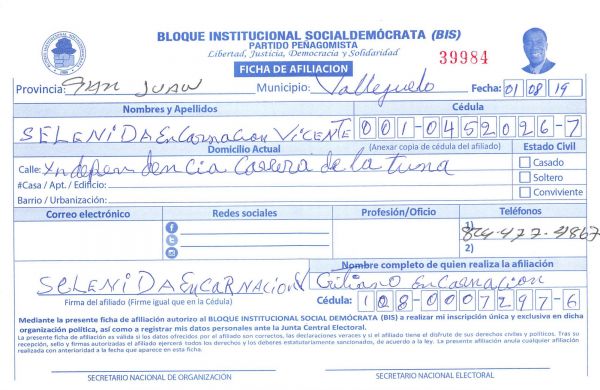 BLOQUE INSTITUCIONAL SOCIALDEMÓCRATA (BIS)
PARTIDO PEÑAGOMISTA
Libertad, Justicia, Democracia y Solidaridad
39984
FICHA DE AFILIACION
Provincia: San JUAN Municipio: Vallejuelo Fecha: 01 08 19
Nombres y Apellidos Cédula
SELENIDA EnCarnacion VICENTE 001-0452026-7
Domicilio Actual (Anexar copia de cédula del afiliado) Estado Civil
Calle: Independencia Carrera de la tuna Casado
#Casa / Apt. / Edificio: Soltero
Barrio / Urbanización: Conviviente
Correo electrónico Redes sociales Profesión/Oficio Teléfonos
1) 829-477-4867
2)
Nombre completo de quien realiza la afiliación
SELENIDA EnCARNACION V Ciliano EnCarnacion
Firma del afiliado (Firme igual que en la Cédula) Cédula: 108-0007297-6
Mediante la presente ficha de afiliación autorizo al BLOQUE INSTITUCIONAL SOCIAL DEMÓCRATA (BIS) a realizar mi inscripción única y exclusiva en dicha
organización política, así como a registrar mis datos personales ante la Junta Central Electoral.
La presente ficha de afiliación es válida si los datos ofrecidos por el afiliado son correctos, las declaraciones veraces y si el afiliado tiene el disfrute de sus derechos civiles y políticos. Tras su
recepción, sello y firmas autorizadas el afiliado ejercerá todos los derechos y los deberes estatutariamente sancionados, de acuerdo a la ley. La presente afiliación anula cualquier afiliación
realizada con anterioridad a la fecha que aparece en esta ficha.
SECRETARIO NACIONAL DE ORGANIZACIÓN SECRETARIO NACIONAL ELECTORAL